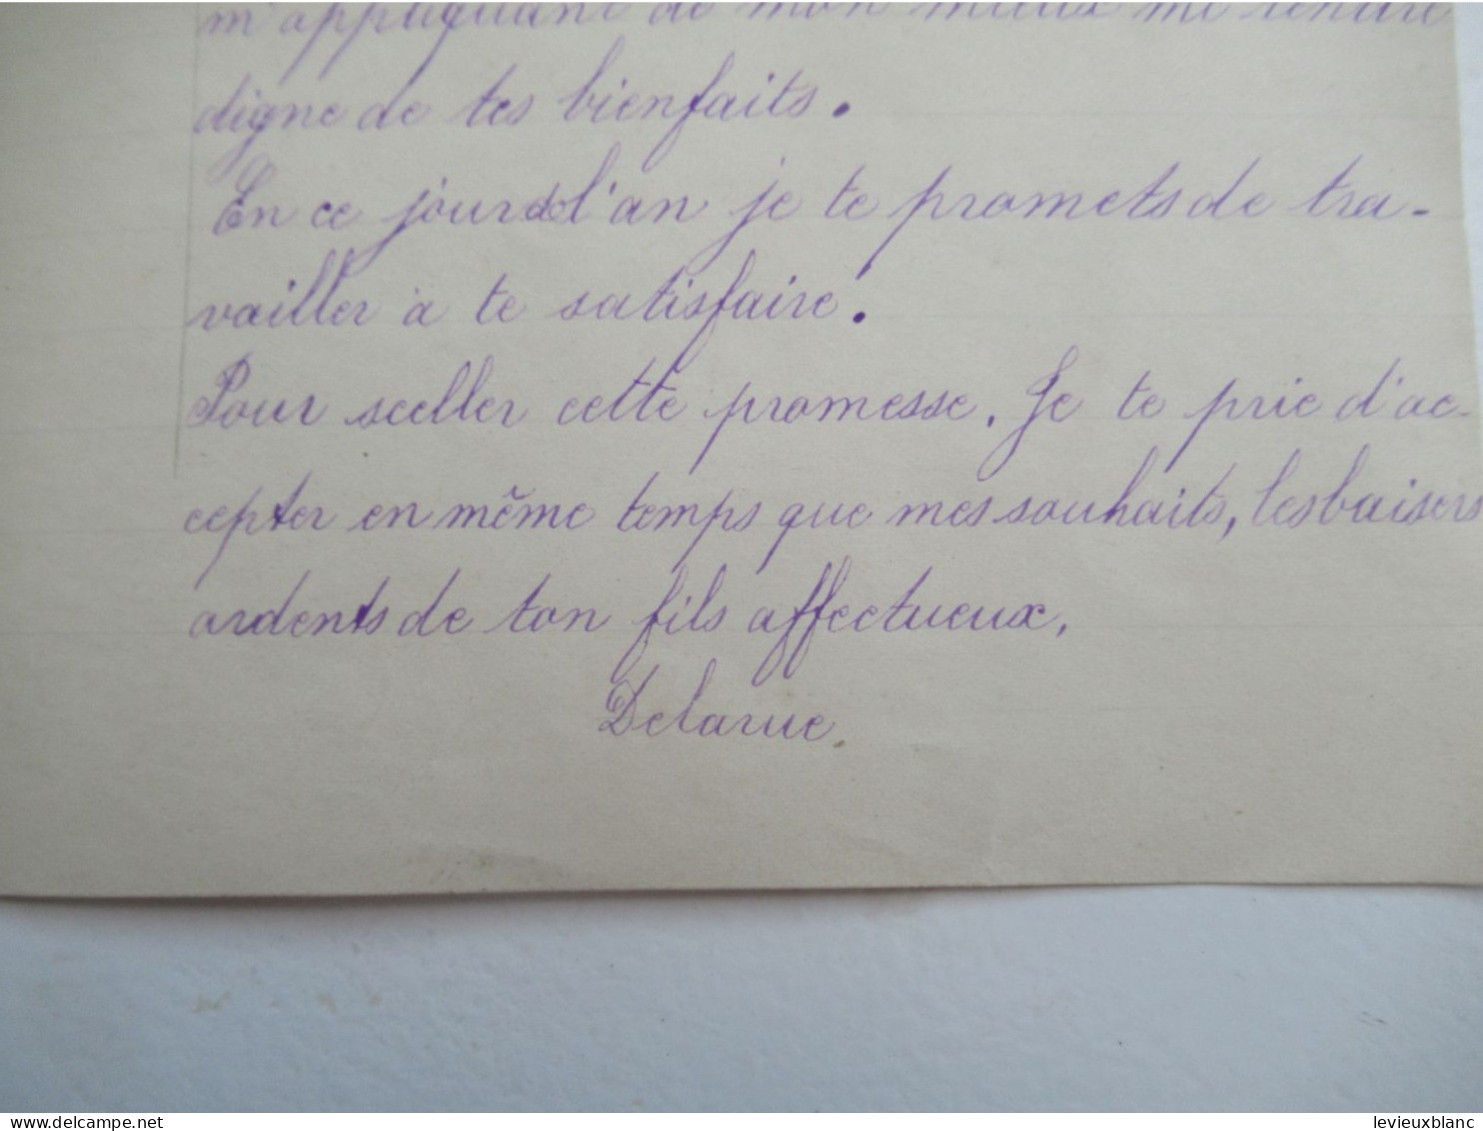 m'appliquant de mon mieux me rendre
digne de tes bienfaits.
En ce jour de l'an je te promets de tra-
vailler à te satisfaire.
Pour sceller cette promesse. Je te prie d'ac-
cepter en même temps que mes souhaits, les baisers
ardents de ton fils affectueux,
Delarue.
levieuxblanc